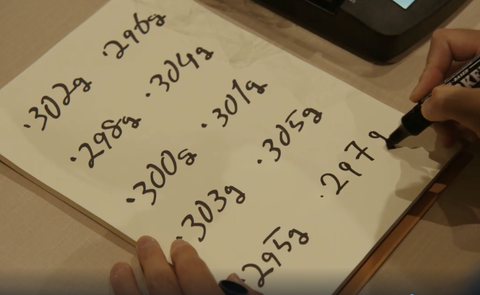 .302g .296g
.298g .304g
.300g .301g
.303g .305g
.295g .297g